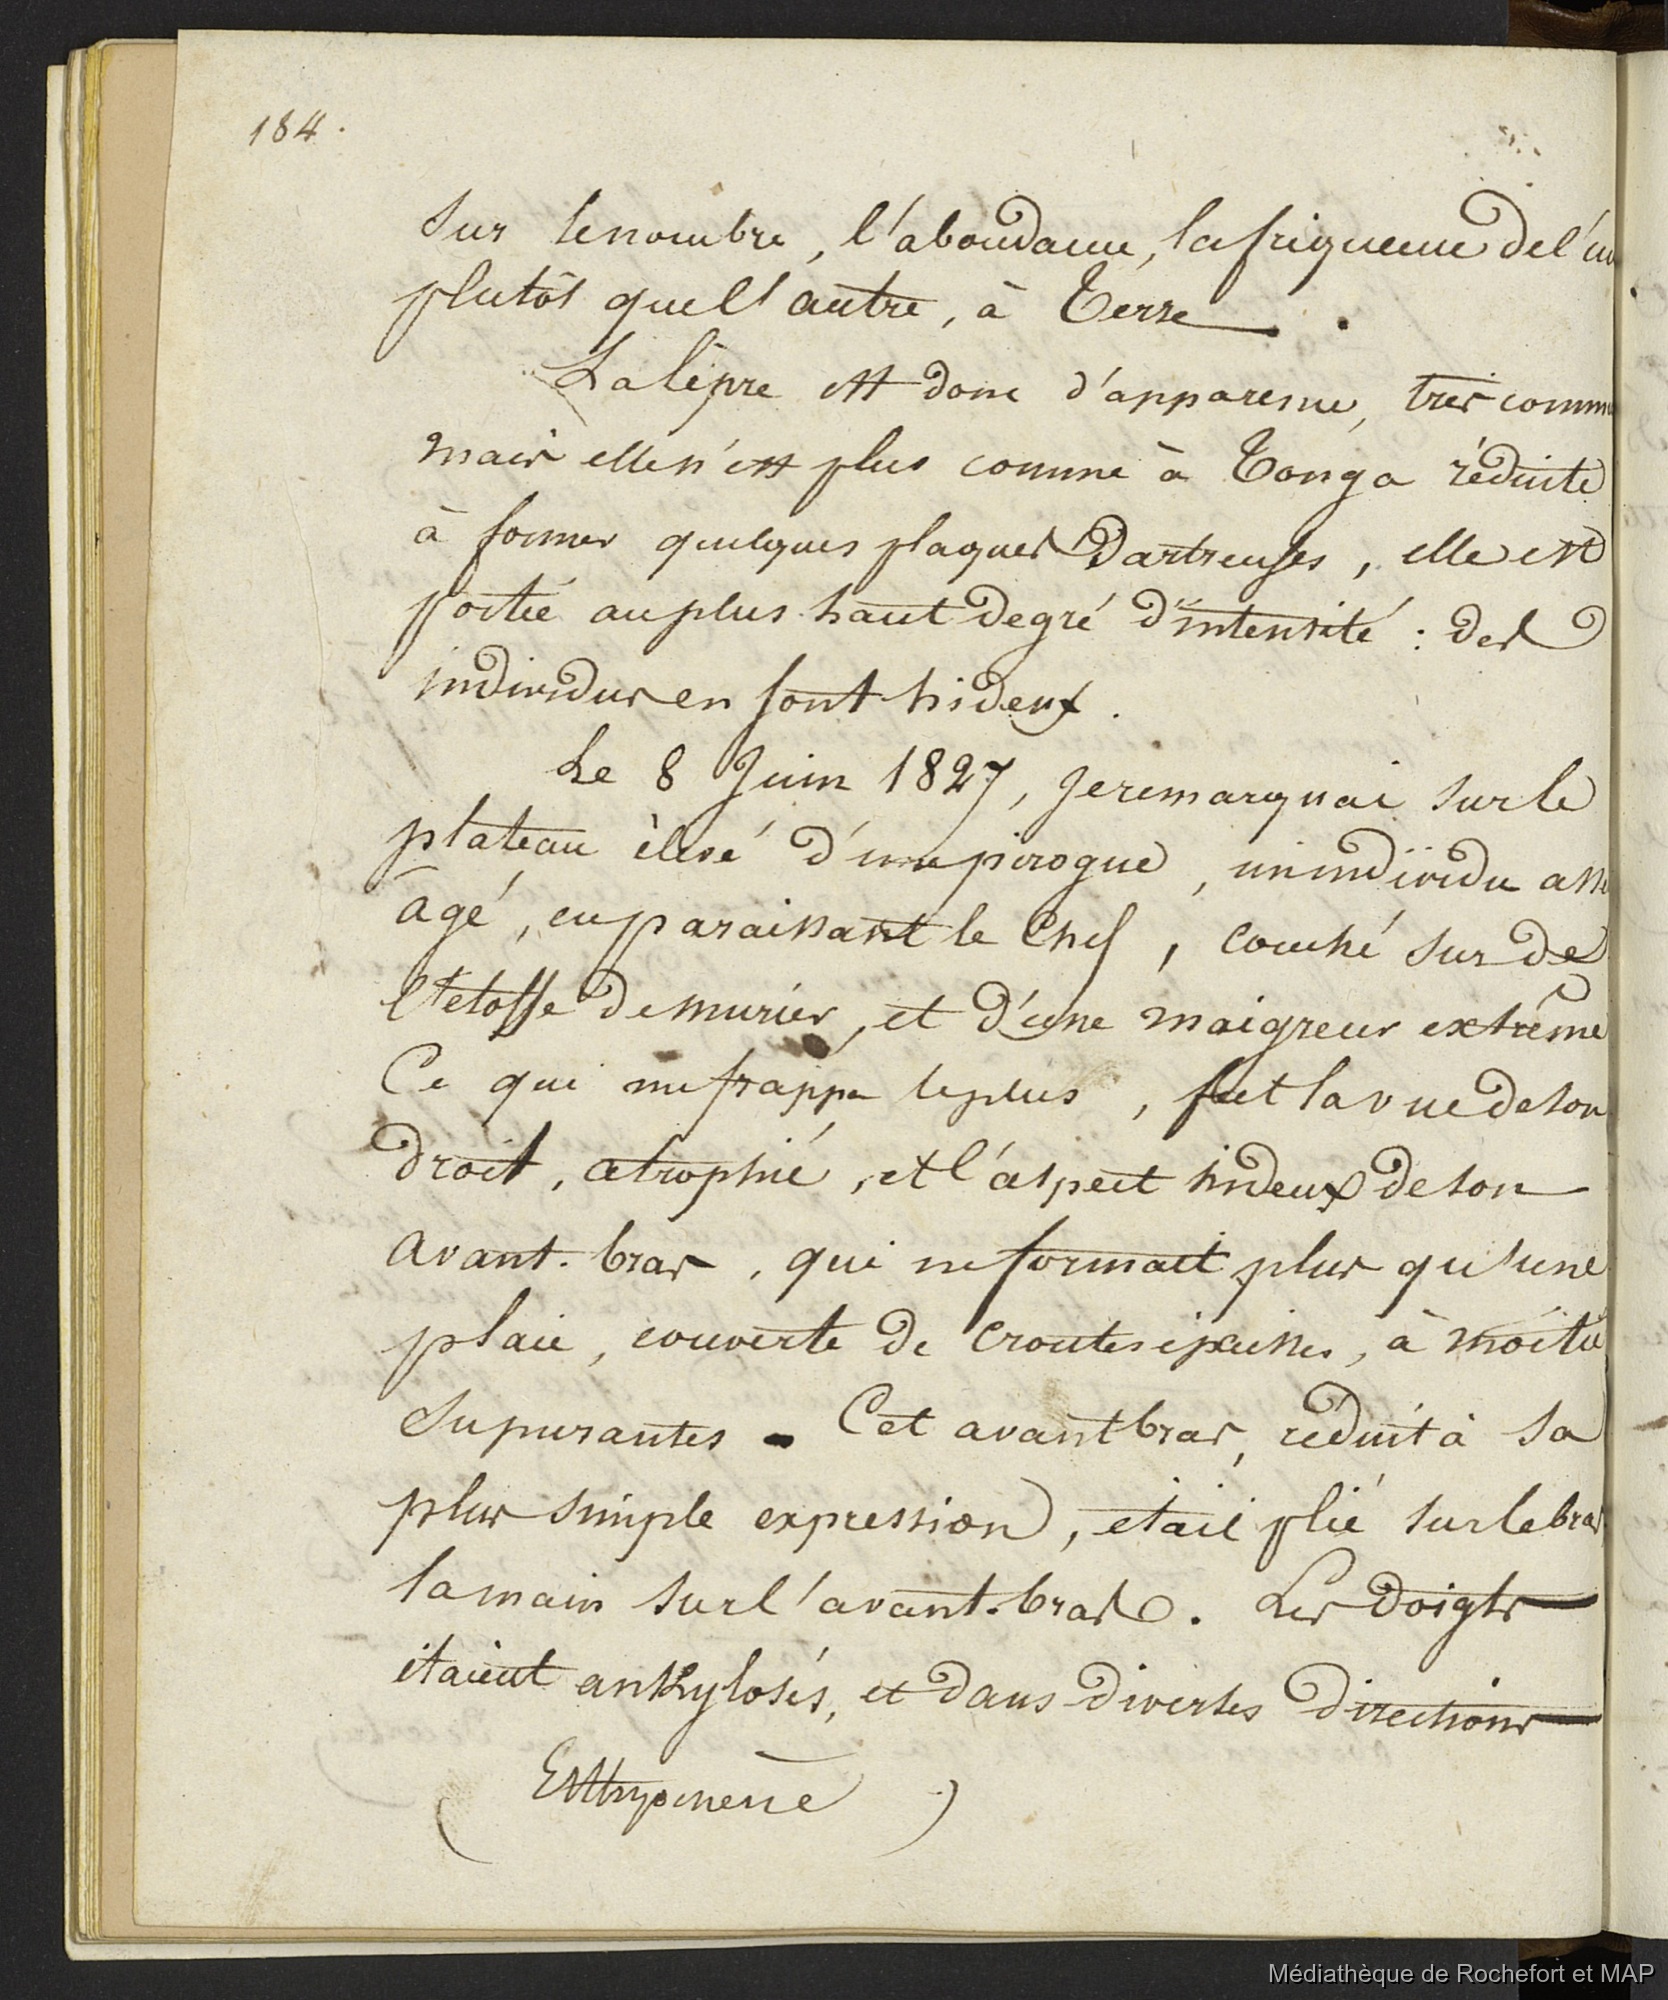 184.
Sur le nombre, l'abondance, la friquence de l'un
plutôt que l'autre, à Terre.
La lèpre est donc d'apparence, très comm
mais elle n'est plus comme à Tonga réduite
à former quelques plaques Dartreuses, elle est
portée au plus haut degré d'intensité : des
individus en sont hideux.
Le 8 Juin 1827, je remarquai sur le
plateau élevé d'une pirogue, un individu asse
âgé, en paraissant le Chef, couché sur de
l'etoffe de murier, et d'une maigreur extrême
Ce qui me frappa le plus, fut la vue de son
droit, atrophié, et l'aspect hideux de son
avant-bras, qui ne formait plus qu'une
plaie, couverte de croutes epaisses, à moitié
supurantes. Cet avant bras, réduit à sa
plus simple expression, etait plié sur le bras
la main sur l'avant-bras. Les doigts
étaient ankylosés, et dans diverses directions
( Esthyomène )
Médiathèque de Rochefort et MAP